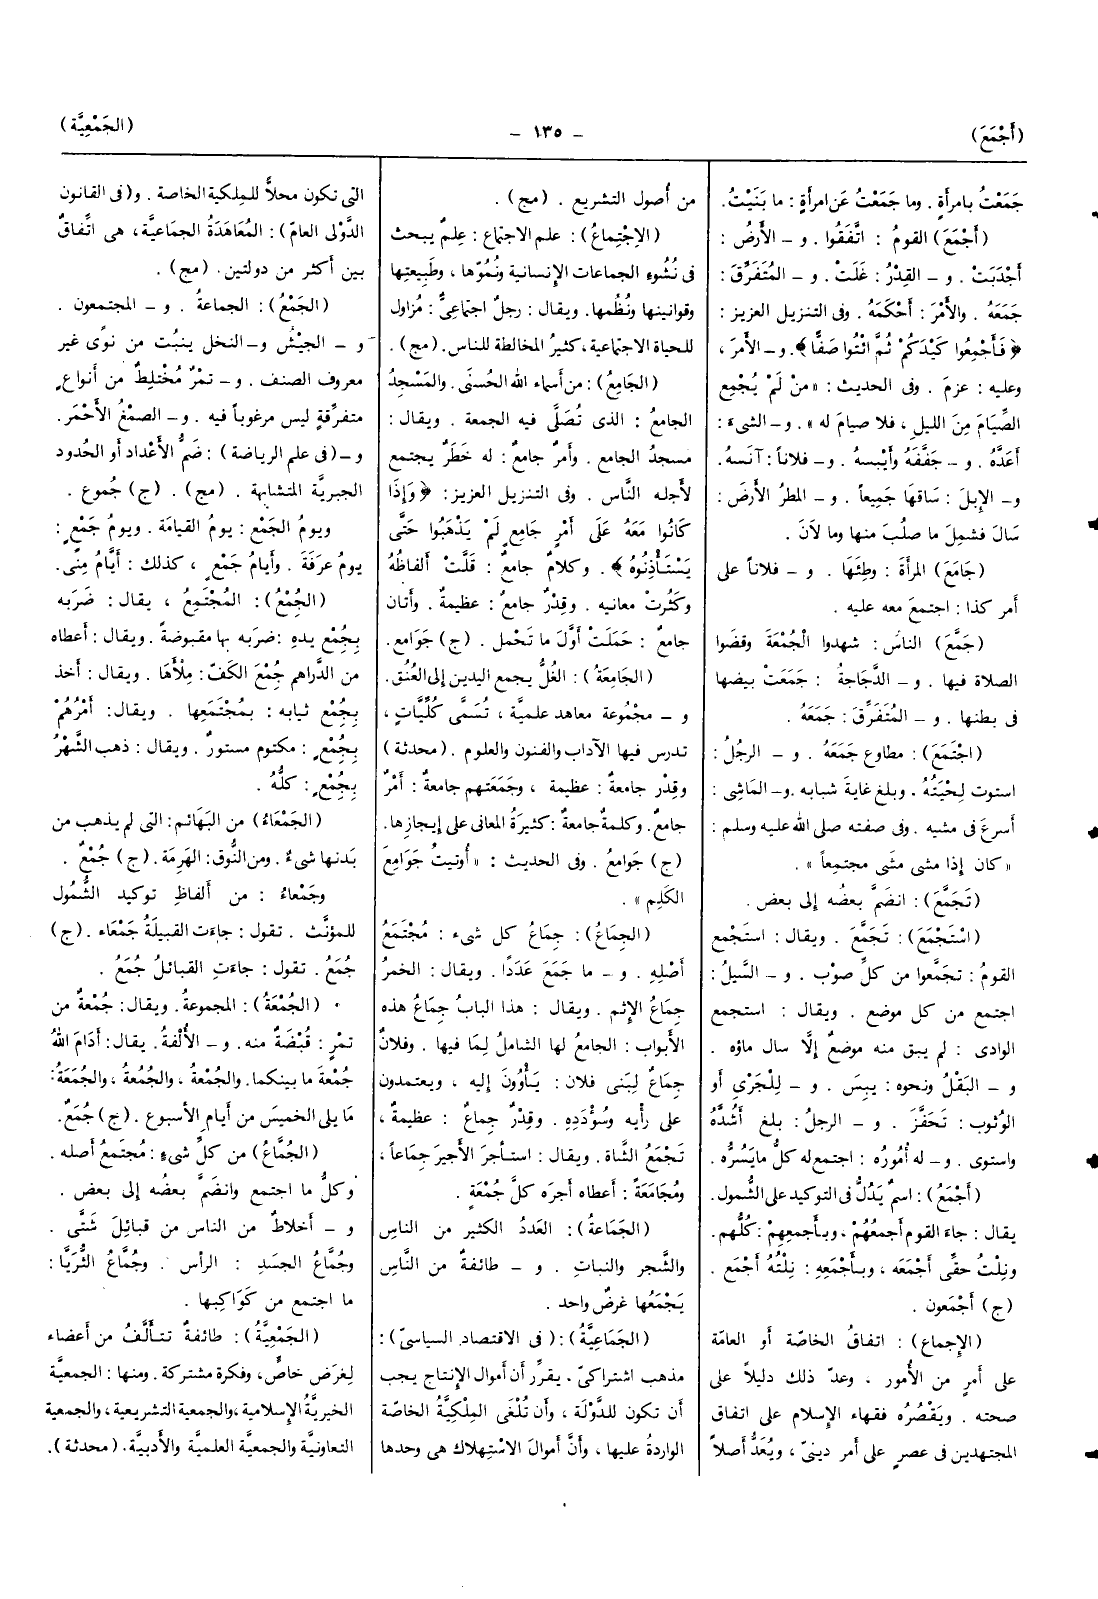 (أَجْمَعَ)
ـ ١٣٥ ـ
(الجَمْعِيَّة)
جَمَعْتُ بامرأةٍ . وما جَمَعْتُ عَن امرأةٍ : ما بَنَيْتُ .
(أَجْمَعَ) القومُ : اتَّفَقُوا . و ـ الأَرضُ :
أَجْدَبَتْ . و ـ القِدْرُ : غَلَتْ . و ـ المُتَفَرِّقَ :
جَمَعَهُ . والأَمْرَ : أَحْكَمَهُ . وفى التنزيل العزيز :
﴿ فَأَجْمِعُوا كَيْدَكُمْ ثُمَّ ائْتُوا صَفًّا ﴾. و ـ الأَمرَ ،
وعليه : عزمَ . وفى الحديث : «مَنْ لَمْ يُجْمِعِ
الصِّيَامَ مِنَ الليلِ ، فلا صيامَ له » . و ـ الشىءَ :
أَعَدَّهُ . و ـ جَفَّفَهُ وأَيْبسهُ . و ـ فلاناً : آنسهُ.
و ـ الإِبلَ : سَاقها جَمِيعاً . و ـ المطرُ الأَرضَ :
سَالَ فشمِلَ ما صلُبَ منها وما لاَنَ .
(جَامَعَ) المرأَةَ : وطِئَها . و ـ فلاناً على
أَمر كذا : اجتمعَ معه عليه .
(جَمَّعَ) الناسُ : شهدوا الْجُمْعَةَ وقضَوا
الصلاة فيها . و ـ الدَّجاجةُ : جَمَعَتْ بيضها
فى بطنها . و ـ المُتَفَرِّقَ : جَمَعَهُ .
(اجْتَمَعَ) : مطاوع جَمَعَهُ . و ـ الرجُلُ :
استوت لِحْيَتُهُ . وبلغ غايةَ شبابه . و ـ المَاشِى :
أسرعَ فى مشيه . وفى صفته صلى الله عليه وسلم :
« كان إذا مشى مشَى مجتمِعاً » .
(تَجَمَّعَ) : انضَمَّ بعضُه إلى بعض .
(اسْتَجْمَعَ) : تَجَمَّعَ . ويقال : استَجْمع
القومُ : تجمَّعوا من كلِّ صوْب . و ـ السَّيلُ :
اجتمع من كل موضع . ويقال : استجمع
الوادى : لم يبق منه موضعٌ إلَّا سال ماؤه .
و ـ البَقْلُ ونحوه : يبِسَ . و ـ لِلْجَرْيِ أَو
الوُثوب : تَحَفَّزَ . و ـ الرجلُ : بلغ أَشُدَّهُ
واستوى . و ـ له أُمُورُه : اجتمع له كلُّ مايَسُرُّه .
(أَجْمَعُ) : اسمٌ يَدُلُّ فى التوكيد على الشُّمول .
يقال : جاءَ القوم أَجمعُهُمْ ، وبأَجمعِهِمْ : كلُّهم .
ونِلْتُ حقِّى أَجْمَعَه ، وبأَجْمَعِهِ : نِلْتُهُ أَجْمَعَ .
(ج) أَجْمَعون .
(الإِجماع) : اتفاقُ الخاصّة أو العامّة
على أَمرٍ من الأُمور ، وعدّ ذلك دليلاً على
صحته . ويَقْصُرُه فقهاء الإسلام على اتفاق
المجتهدين فى عصرٍ على أمر دينىّ ، ويُعَدُّ أصلاً
من أُصول التشريع . (مج) .
(الاِجْتِماعُ) : علم الاجتماع : عِلمٌ يبحث
فى نُشُوءِ الجماعات الإِنسانية ونُمُوّها ، وطَبِيعتِها
وقوانينها ونُظُمها . ويقال : رجلٌ اجتماعِىٌّ : مُزاول
للحياة الاجتماعية ، كثيرُ المخالطة للناس . (مج) .
(الجَامِعُ) : من أسماء الله الحُسنَى . والمَسْجِدُ
الجامعُ : الذى تُصَلَّى فيه الجمعة . ويقال :
مسجدُ الجامع . وأَمرٌ جامعٌ : له خَطَرٌ يجتمع
لأجله النَّاس . وفى التنزيل العزيز : ﴿ وَإِذَا
كَانُوا مَعَهُ عَلَى أَمْرٍ جَامِعٍ لَمْ يَذْهَبُوا حَتَّى
يَسْتَأْذِنُوهُ ﴾ . وكلامٌ جامعٌ : قَلَّتْ ألفاظُهُ
وكَثُرتْ معانيه . وقِدْرٌ جامعٌ : عظيمةٌ . وأَتان
جامعٌ : حَمَلَتْ أوَّلَ ما تَحْمل . (ج) جَوَامع.
(الجَامِعَةُ) : الغُلُّ يجمع اليدين إلى العُنُق .
و ـ مجْمُوعة معاهد علميَّة ، تُسَمَّى كلِّيَّاتٍ ،
تدرس فيها الآداب والفنون والعلوم . (محدثة)
وقِدْر جامعةٌ : عظيمة ، وجَمَعَتهم جامعةٌ : أَمْرٌ
جامعٌ. وكلمةٌ جامعةٌ : كثيرةُ المعانى على إيجازها.
(ج) جَوامعُ . وفى الحديث : « أُوتيتُ جَوَامِعَ
الكَلِم » .
(الجِماعُ) : جِماعُ كل شىء : مُجْتَمَعُ
أَصْلِهِ . و ـ ما جَمَعَ عَدَدًا . ويقال : الخمرُ
جِماعُ الإثم . ويقال : هذا البابُ جِمَاعُ هذه
الأبواب : الجامعُ لها الشاملُ لِمَا فيها . وفلانٌ
جِماعٌ لِبَنى فلان : يَأْوُونَ إليه ، ويعتمدون
على رأيه وسُؤْدَدِهِ . وقِدْرٌ جِماعٌ : عظيمةٌ ،
تَجْمَعُ الشَّاة . ويقال : استأجرَ الأَجيرَ جِمَاعاً ،
ومُجَامَعَةً : أعطاه أجرَه كلَّ جُمْعَةٍ .
(الجَمَاعةُ) : العَددُ الكثير من الناسِ
والشَّجر والنباتِ . و ـ طائفةٌ من النَّاسِ
يَجْمَعُها غرضٌ واحد .
(الجَمَاعِيَّةُ) : (فى الاقتصاد السياسىّ) :
مذهب اشتراكىّ ، يقرِّر أن أموال الإنتاج يجب
أن تكون للدَّوْلة ، وأَن تُلْغَى المِلْكيَّةُ الخاصّة
الواردةُ عليها ، وأنَّ أموالَ الاسْتِهلاك هى وحدها
التى تكون محلاًّ للمِلكية الخاصة . و(فى القانون
الدَّوْلى العامّ) : المُعَاهَدَةُ الجماعيَّة ، هى اتِّفاقٌ
بين أكثر من دولتين . (مج) .
(الجَمْعُ) : الجماعةُ . و ـ المجتمعون .
و ـ الجيْشُ و ـ النخل ينبُت من نوًى غير
معروف الصنف . و ـ تمْرٌ مُخْتلِطٌ من أنواعٍ
متفرِّقةٍ ليس مرغوباً فيه . و ـ الصمْغُ الأَحْمَر.
و ـ (فى علم الرياضة) : ضَمُّ الأَعْداد أو الحُدود
الجبريَّة المتشابهة . (مج) . (ج) جُموع .
ويومُ الجَمْع : يومُ القيامة . ويومُ جَمْعٍ :
يومُ عرفَةَ . وأَيامُ جَمْعٍ ، كذلك : أَيَّامُ مِنًى.
(الجُمْعُ) : المُجْتَمِعُ ، يقال : ضَرَبه
بِجُمْع يدهِ : ضرَبه بها مقبوضةً . ويقال : أَعطاه
من الدَّراهم جُمْعَ الكَفِّ : مِلْأَهَا . ويقال : أخذ
بِجُمْع ثيابه : بمُجْتَمَعِها . ويقال : أَمْرُهُمْ
بِجُمْعٍ : مكتوم مستورٌ . ويقال : ذهب الشَّهْرُ
بِجُمْعٍ : كلُّهُ .
(الجَمْعَاءُ) من البَهَائم : التى لم يذهب من
بَدنها شىءٌ . ومن النُّوق : الهَرِمَة . (ج) جُمْعٌ .
وجَمْعاءُ : من أَلفاظِ توكيد الشُّمُول
للمؤنَّث . تقول : جاءت القبيلَةُ جَمْعَاء . (ج)
جُمَعُ . تقول : جاءَتِ القبائلُ جُمَعُ .
(الجُمْعَةُ) : المجموعةُ . ويقال : جُمْعَةٌ من
تمْرٍ : قُبْضَةٌ منه . و ـ الأُلْفةُ . يقال : أَدَامَ اللهُ
جُمْعَةَ ما بينكما . والجُمْعةُ ، والجُمُعةُ ، والجُمَعَةُ :
مَا يلى الخميسَ من أَيامِ الأسبوع . (ج) جُمَعٌ.
(الجُمَّاعُ) من كلِّ شىءٍ : مُجتَمعُ أصله .
وكلُّ ما اجتمع وانضَمَّ بعضُه إلى بعض .
و ـ أخلاطٌ من الناس من قبائلَ شَتَّى .
وجُمَّاعُ الجسَدِ : الرأس . وجُمَّاعُ الثُّرَيَّا :
ما اجتمع من كَوَاكبِها .
(الجَمْعِيَّةُ) : طائفةٌ تتألَّفُ من أعضاء
لِغرَض خاصٍّ ، وفكرة مشتركة . ومنها : الجمعيَّة
الخيريَّةُ الإسلامية ، والجمعية التشريعية ، والجمعية
التعاونيَّة والجمعيَّة العلميَّة والأدبيَّة . (محدثة) .